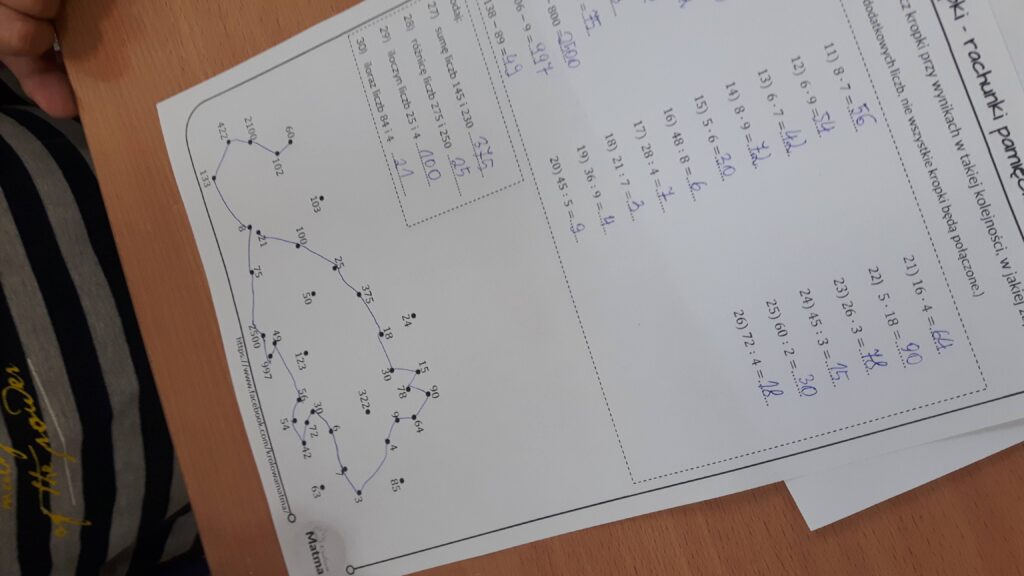 - rachunki pamię
z kropki przy wynikach w takiej kolejności, w jakiej
nie wszystkie kropki będą połączone.)
800 = 2500
06 - 9 = 997
138 - 89 = 49
11) 8 · 7 = 56
12) 6 · 9 = 54
13) 6 · 7 = 42
14) 8 · 9 = 72
15) 5 · 6 = 30
16) 48 : 8 = 6
17) 28 : 4 = 7
18) 21 : 7 = 3
19) 36 : 9 = 4
20) 45 : 5 = 9
21) 16 · 4 = 64
22) 5 · 18 = 90
23) 26 · 3 = 78
24) 45 : 3 = 15
25) 60 : 2 = 30
26) 72 : 4 = 18
27) sumę liczb 145 i 230 375
28) różnicę liczb 275 i 250 25
29) iloczyn liczb 25 i 4 100
30) iloraz liczb 84 i 4 21
60
2100
102
422
133
103
8
21
100
75
25
50
375
24
18
2500
49
997
123
30
15
78
90
322
9
64
56
54
30
72
42
6
4
85
7
63
3
https://www.facebook.com/krolowamatma/
Matma
of the power